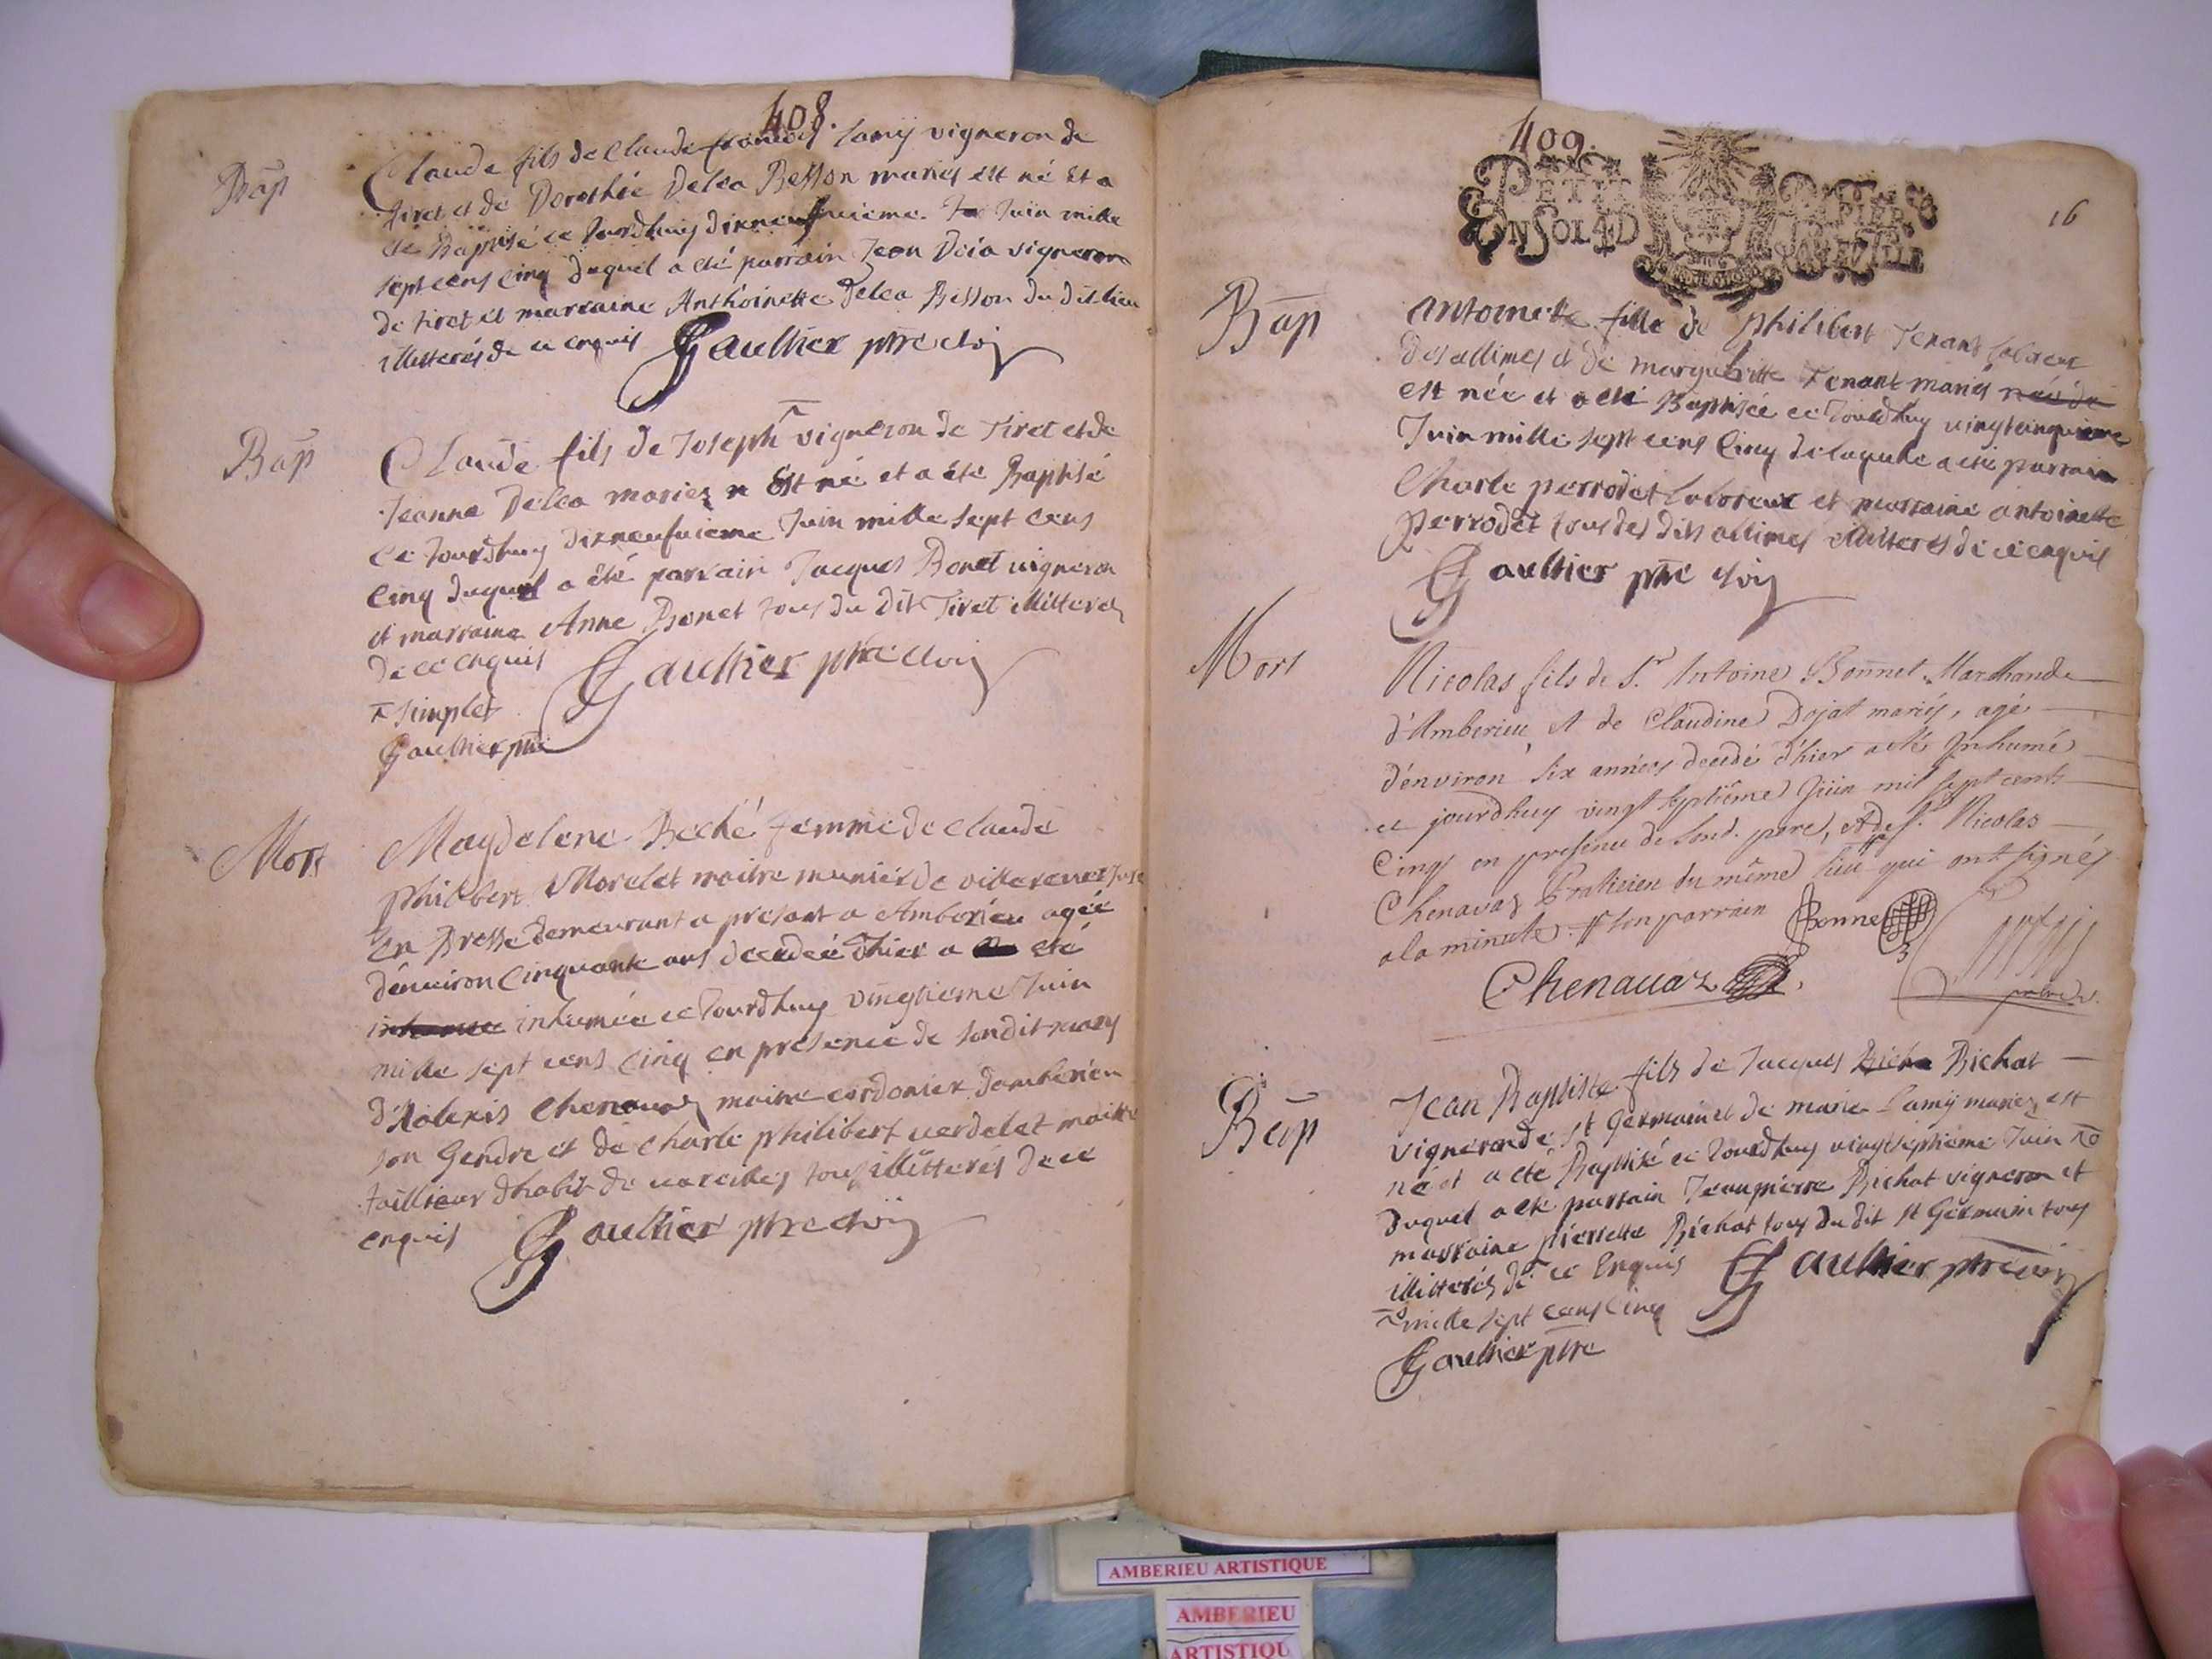 408.
Bap
Claude fils de Claude françois Lamy vigneron de
tiret et de Dorothée Delea Besson mariés est né et a
été Baptisé ce Jourdhuy dixneufuieme Juin mille
sept cens cinq duquel a été parrain Jean Deia vigneron
de tiret et marraine Anthoinette Delea Besson du dit lieu
illitterés de ce enquis Gaultier ptre
Bap
Claude fils de Joseph vigneron de Tiret et de
Jeanne Delea mariez Est né et a été Baptisé
ce Jourdhuy dixneufuieme Juin mille sept cens
Cinq duquel a été parrain Jacques Bonet vigneron
et marraine Anne Bonet tous du dit Tiret illitterez
de ce enquis Gaultier ptre
simplet
Gaultier ptre
Mort
Magdelene Beché femme de Claude
philibert Morelet maitre munier de villereuersure
en Bresse demeurant a present a Amberieu agée
denuiron cinquante ans decedeé d'hier a été
inhumée ce Jourdhuy vingtieme Juin
mille sept cens cinq en presence de sondit mary
d'Alexis Chenauaz maitre cordonier damberieu
son Gendre et de Charle philibert uerdelet maitre
taillieur dhabit de uareilles tous illitterés de ce
enquis Gaultier ptre
409.
PETIT PAPIER
16
Bap
Antoinette fille de philibert Tenant laboreur
des allimes et de margueritte Tenant mariés née de
est née et a été Baptisée ce Jourdhuy uingtcinquieme
Juin mille sept cens Cinq de laquelle a été parrain
Charle perrodet laboreur et marraine antoinette
perrodet tous des dits allimes illitterés de ce enquis
Gaultier ptre
Mort
Nicolas fils de Sr. Antoine Bonnet Marchand
d'Amberieu, et de Claudine Dojat mariés, agé
d'environ six années decedé d'hier a été Inhumé
ce jourdhuy vingt septiême Juin mil sept cents
Cinq en presence de Sond. pere, et de Sr. Nicolas
Chenavaz Praticien du même lieu qui ont signés
a la minute. son parrain Bonnet
Chenauaz
Bap
Jean Baptiste fils de Jacques Bichat
vigneron de st Germain et de marie Lamy mariez est
né et a été Baptisé ce Jourdhuy vingtseptieme Juin
duquel a été parrain Jeanpierre Bichat vigneron et
marraine pierrette Bichat tous du dit st Germain tous
illitterés de ce Enquis Gaultier ptre
mille sept cens Cinq
Gaultier ptre
AMBERIEU ARTISTIQUE
AMBERIEU
ARTISTIQU